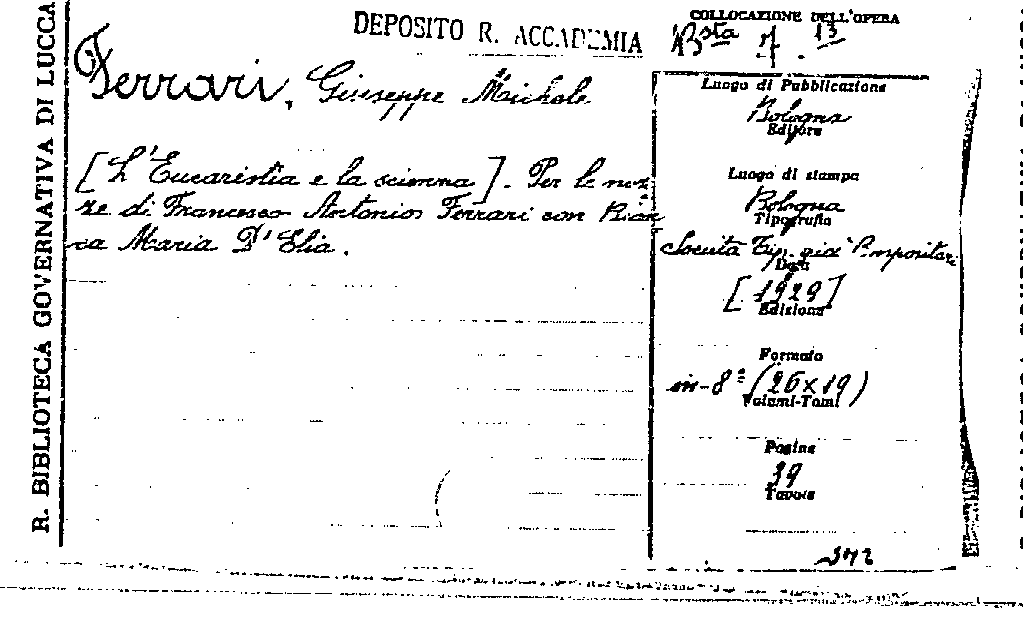 R. BIBLIOTECA GOVERNATIVA DI LUCCA
DEPOSITO R. ACCADEMIA
COLLOCAZIONE DELL'OPERA
Bsta 7. 13
Ferrari, Giuseppe Michele
[L'Eucaristia e la scimma]. Per le noz-
ze di Francesco Antonio Ferrari con Bian
ca Maria D'Elia.
Luogo di Pubblicazione
Bologna
Editore
Luogo di stampa
Bologna
Tipografia
Società Tip. già Compositori
Data
[1929]
Edizione
Formato
in-8º (26x19)
Volumi-Tomi
Pagine
39
Tavole